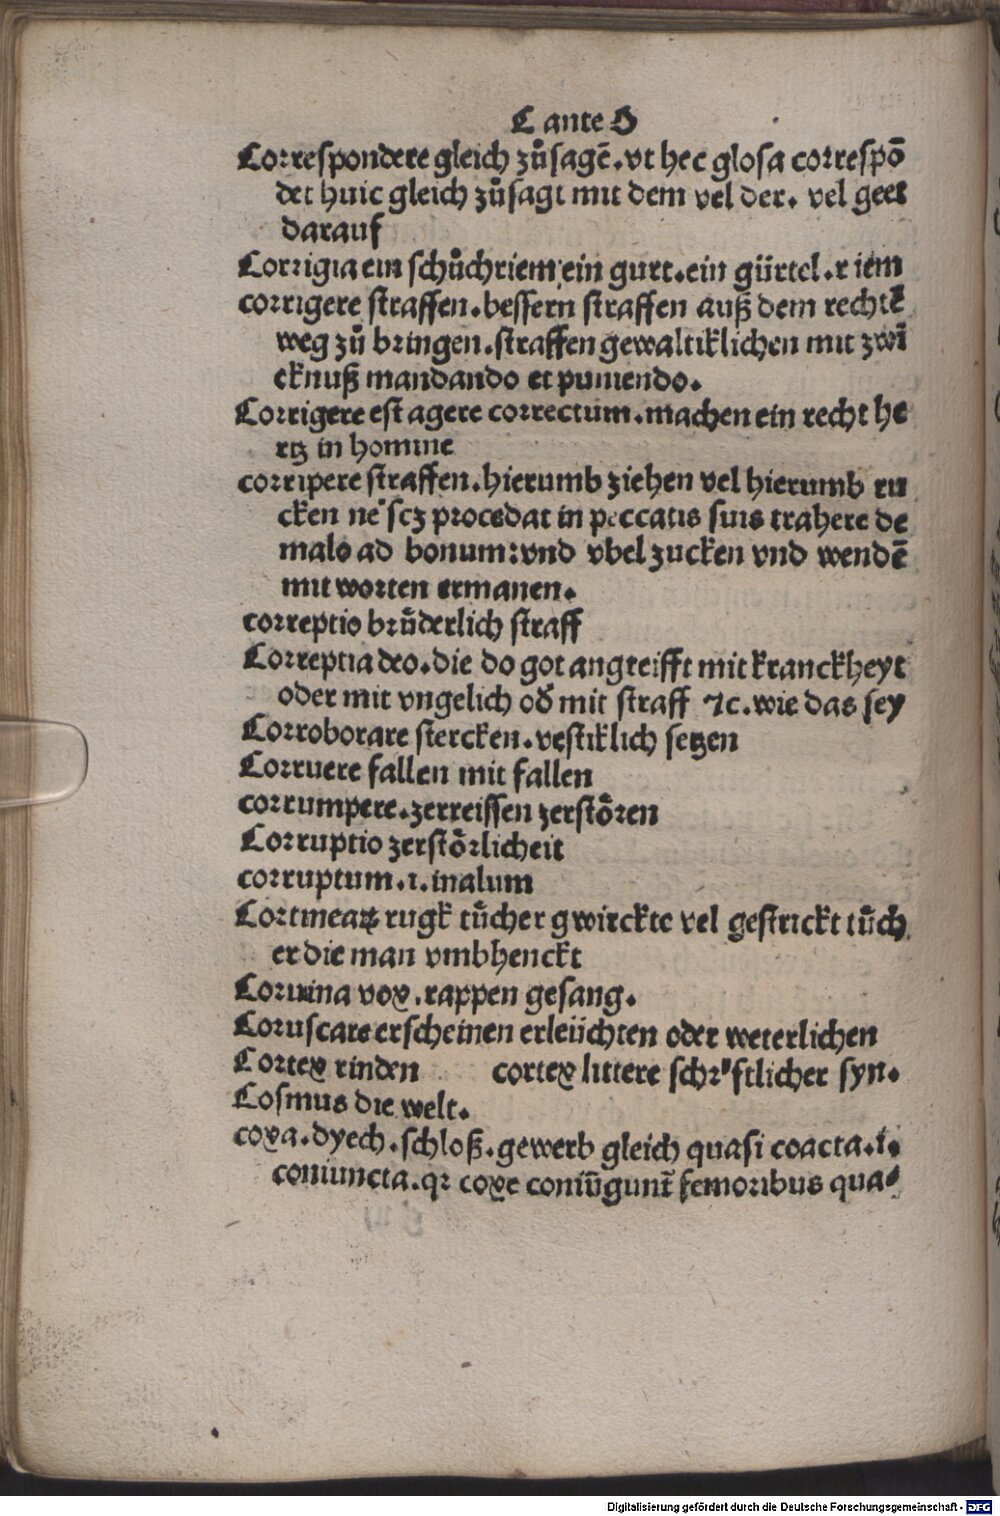 C ante O
Correspondere gleich zůsagē. vt hec glosa correspō
det huic gleich zůsagt mit dem vel der. vel geet
darauf
Corrigia ein schůchriem ein gurt. ein gürtel. r iem
corrigere straffen. bessern straffen auß dem rechtē
weg zů bringen. straffen gewaltiklichen mit zwī
cknuß mandando et puniendo.
Corrigere est agere correctum. machen ein recht he
rtz in homine
corripere straffen. hierumb ziehen vel hierumb ru
cken ne scz procedat in peccatis suis trahere de
malo ad bonum: vnd vbel zucken vnd wendē
mit worten ermanen.
correptio brůderlich straff
Correptia deo. die do got angreifft mit kranckheyt
oder mit vngelich od̄ mit straff ⁊c. wie das sey
Corroborare stercken. vestiklich setzen
Corruere fallen mit fallen
corrumpere. zerreissen zerstören
Corruptio zerstörlicheit
corruptum. i. malum
Cortmeatz rugk tůcher gwirckte vel gestrickt tůch
er die man vmbhenckt
Coruina vox. rappen gesang.
Coruscare erscheinen erleüchten oder weterlichen
Cortex rinden cortex littere schriftlicher syn.
Cosmus die welt.
coxa. dyech. schloß. gewerb gleich quasi coacta. i.
coniuncta. qꝛ coxe coniūgunt̄ femoribus qua⸗
Digitalisierung gefördert durch die Deutsche Forschungsgemeinschaft - DFG